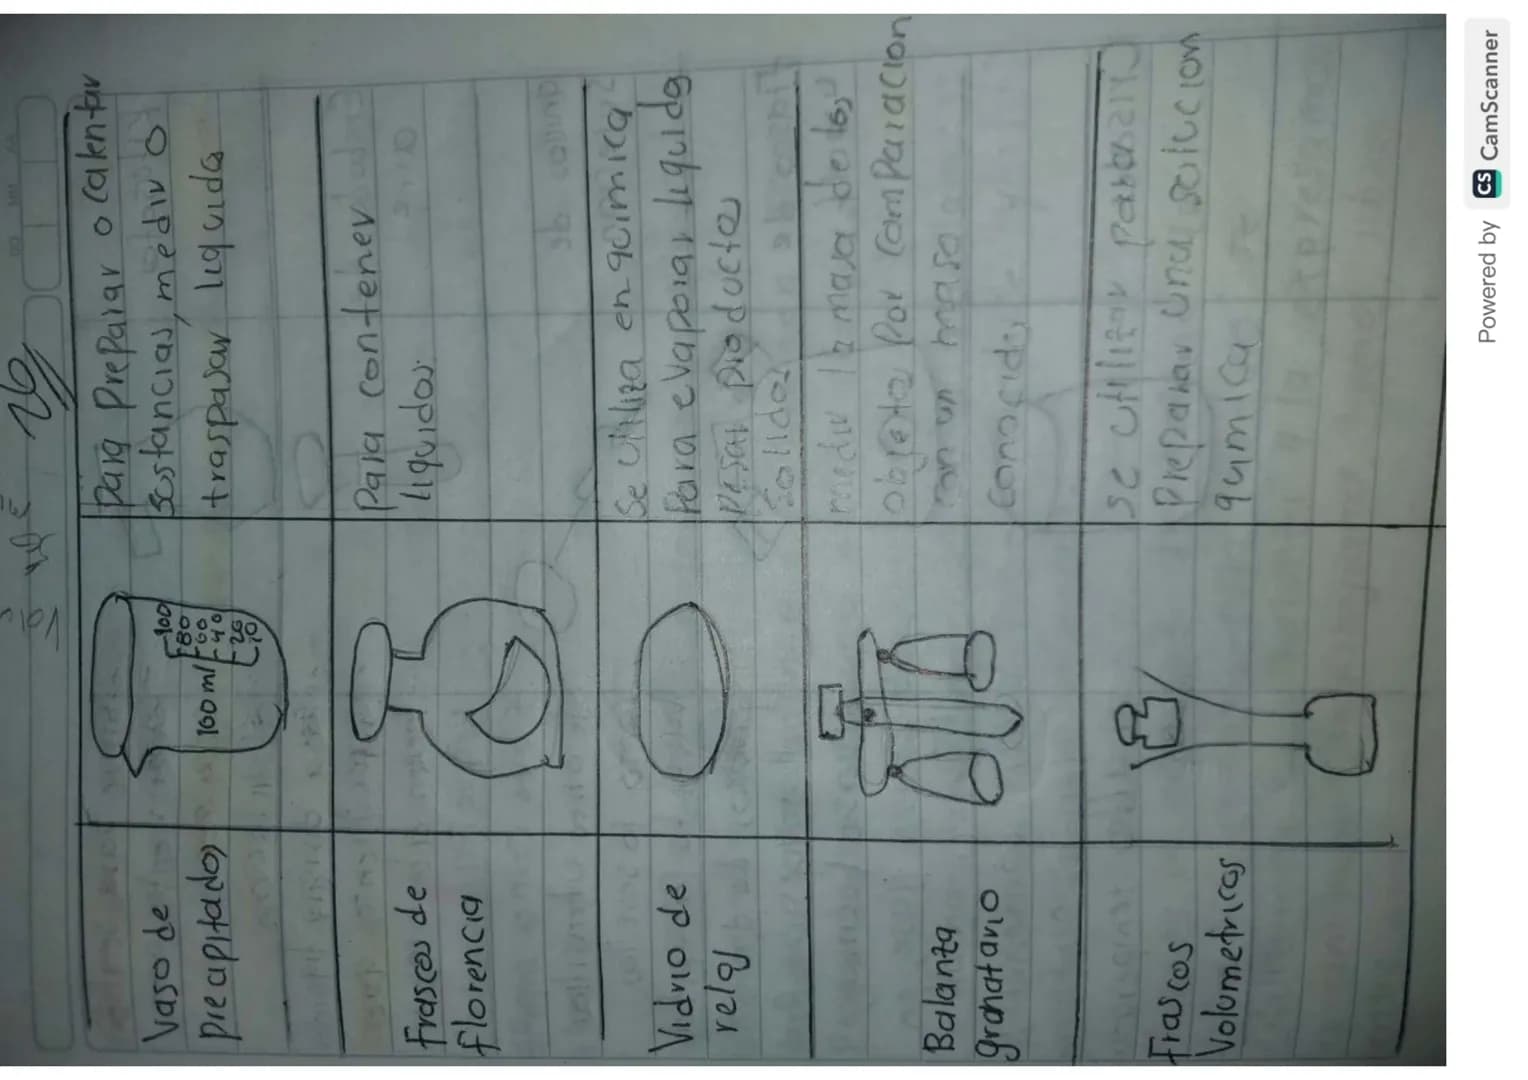 26
Vaso de
precapitados
100 ml
100
80
60
40
20
10
Para Preparar o calentar
sustancias, medir o
traspasar liquidos
Frascos de
florencia
Para contener
liquidos.
Vidrio de
reloj
Se utiliza en quimica
Para evaporar liquidos
Pesar productos
solidos
Balanza
granatario
medir la masa de los
objetos Por comparacion
con un masa
conocida
Frascos
Volumetricos
se utilizar para
Preparar una solucion
quimica
Powered by CS CamScanner